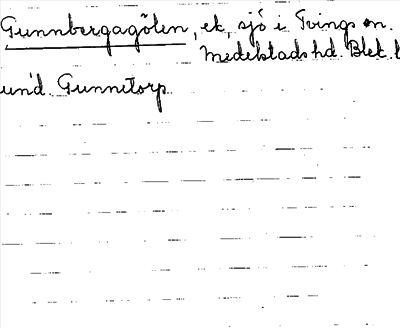 Gunnbergagölen, ek, sjö i Tvings sn.
Medelstads hd. Blek. l
und. Gunnetorp